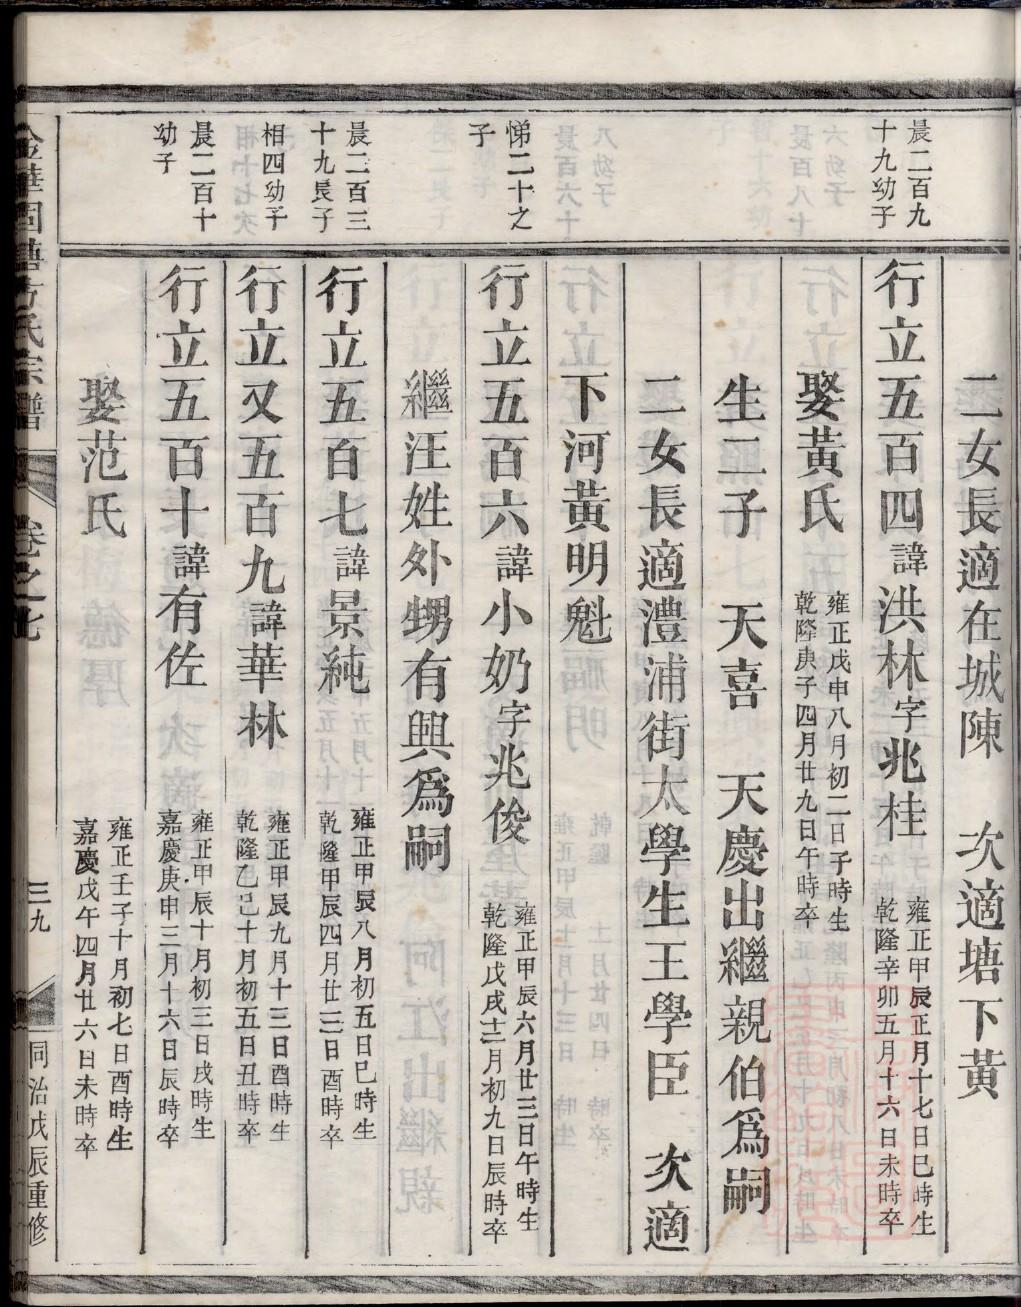 二女長適在城陳　次適塘下黃
晨二百九
十九幼子
行立五百四諱洪林字兆桂
雍正甲辰正月十七日巳時生
乾隆辛卯五月十六日未時卒
娶黃氏
雍正戊申八月初二日子時生
乾隆庚子四月廿九日午時卒
生二子　天喜　天慶出繼親伯爲嗣
二女長適澧浦街太學生王學臣　次適
下河黃明魁
悌二十之
子
行立五百六諱小奶字兆俊
雍正甲辰六月廿三日午時生
乾隆戊戌十二月初九日辰時卒
繼汪姓外甥有興爲嗣
晨二百三
十九長子
行立五百七諱景純
雍正甲辰八月初五日巳時生
乾隆甲辰四月廿三日酉時卒
相四幼子
行立又五百九諱華林
雍正甲辰九月十三日酉時生
乾隆乙巳十月初五日丑時卒
晨二百十
幼子
行立五百十諱有佐
雍正甲辰十月初三日戌時生
嘉慶庚申三月十六日辰時卒
娶范氏
雍正壬子十月初七日酉時生
嘉慶戊午四月廿六日未時卒
氏宗譜
卷之
三九
同治戊辰重修